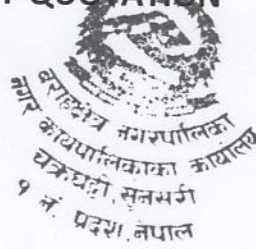 QUOTATION
बराहक्षेत्र नगरपालिका
नगर कार्यपालिकाको कार्यालय
चक्रघट्टी, सुनसरी
१ नं. प्रदेश, नेपाल